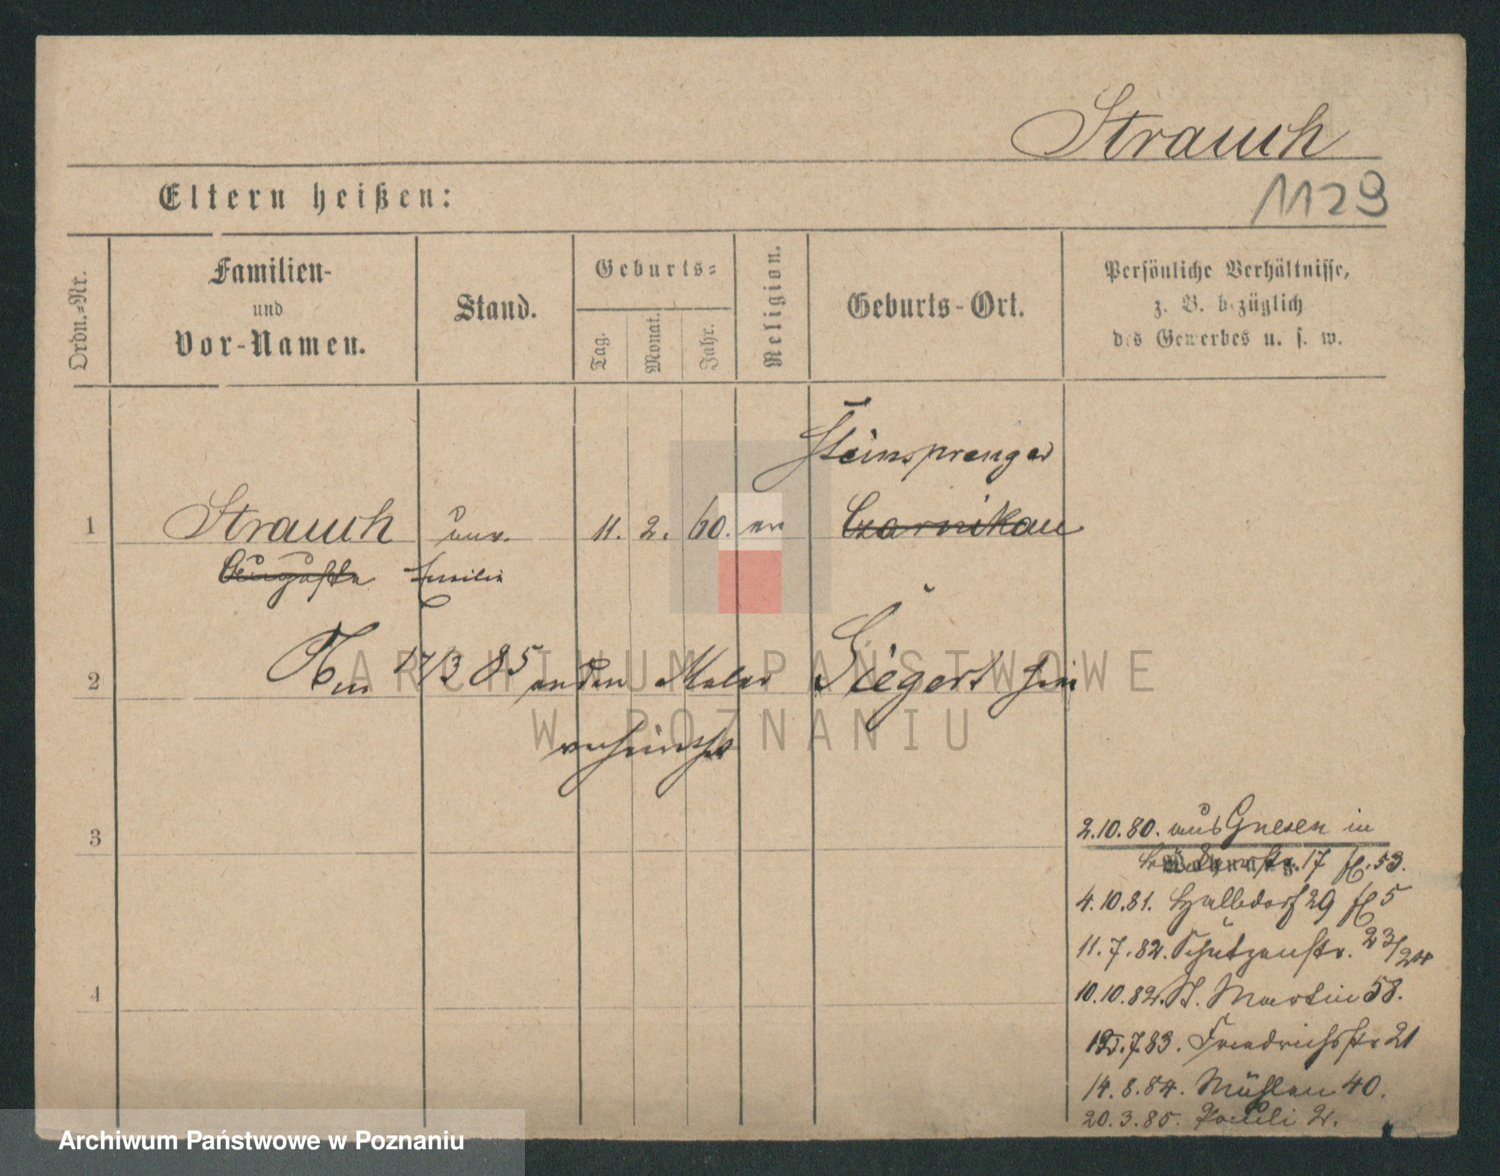 Strauch
Eltern heißen:
1129
Ordn.=Nr.
Familien-
und
Vor-Namen.
Stand.
Geburts=
Tag.
Monat.
Jahr.
Religion.
Geburts-Ort.
Persönliche Verhältnisse,
z. B. bezüglich
des Gewerbes u. s. w.
Steinsprenger
1 Strauch unv. 11. 2. 60. ev Czarnikau
Auguste Emilie
2 17/3 85 an den Maler Siegert hier
verheirathet
3
4
2.10.80. aus Gnesen in
17 53.
4.10.81. Halbdorf 29 5
11.7.82. Schützenstr. 23/24
10.10.82. St. Martin 58.
7.83. Friedrichsstr 21
14.8.84. Mühlen 40.
20.3.85. Pauli 2.
ARCHIWUM PAŃSTWOWE
W POZNANIU
Archiwum Państwowe w Poznaniu